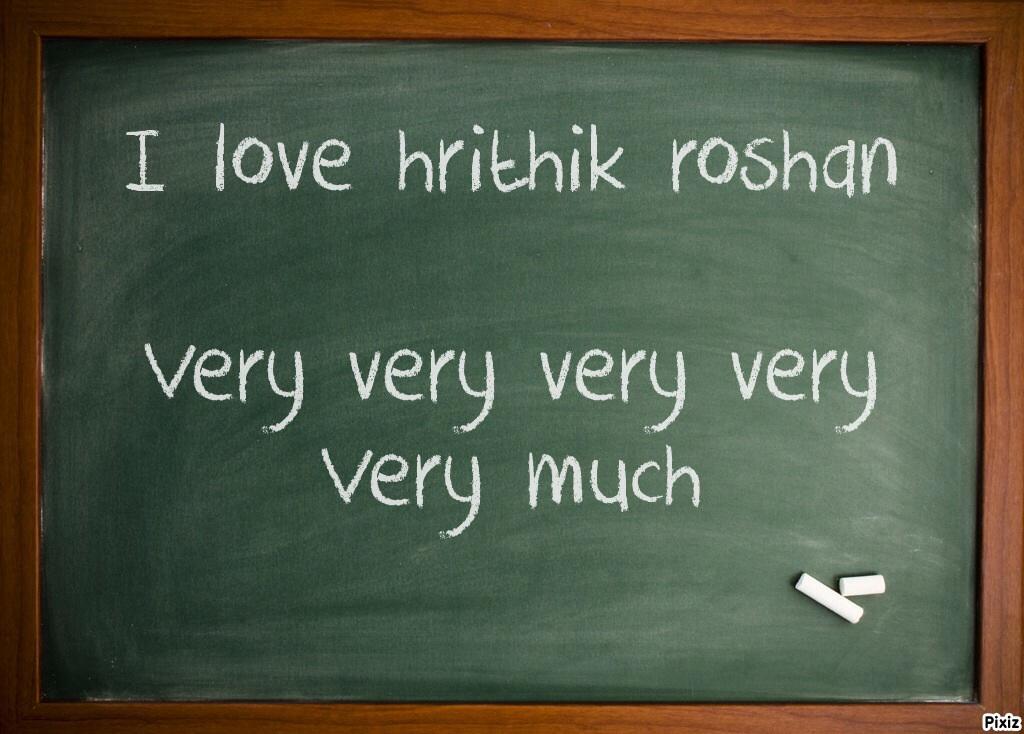 I love hrithik roshan
very very very very
very much
Pixiz